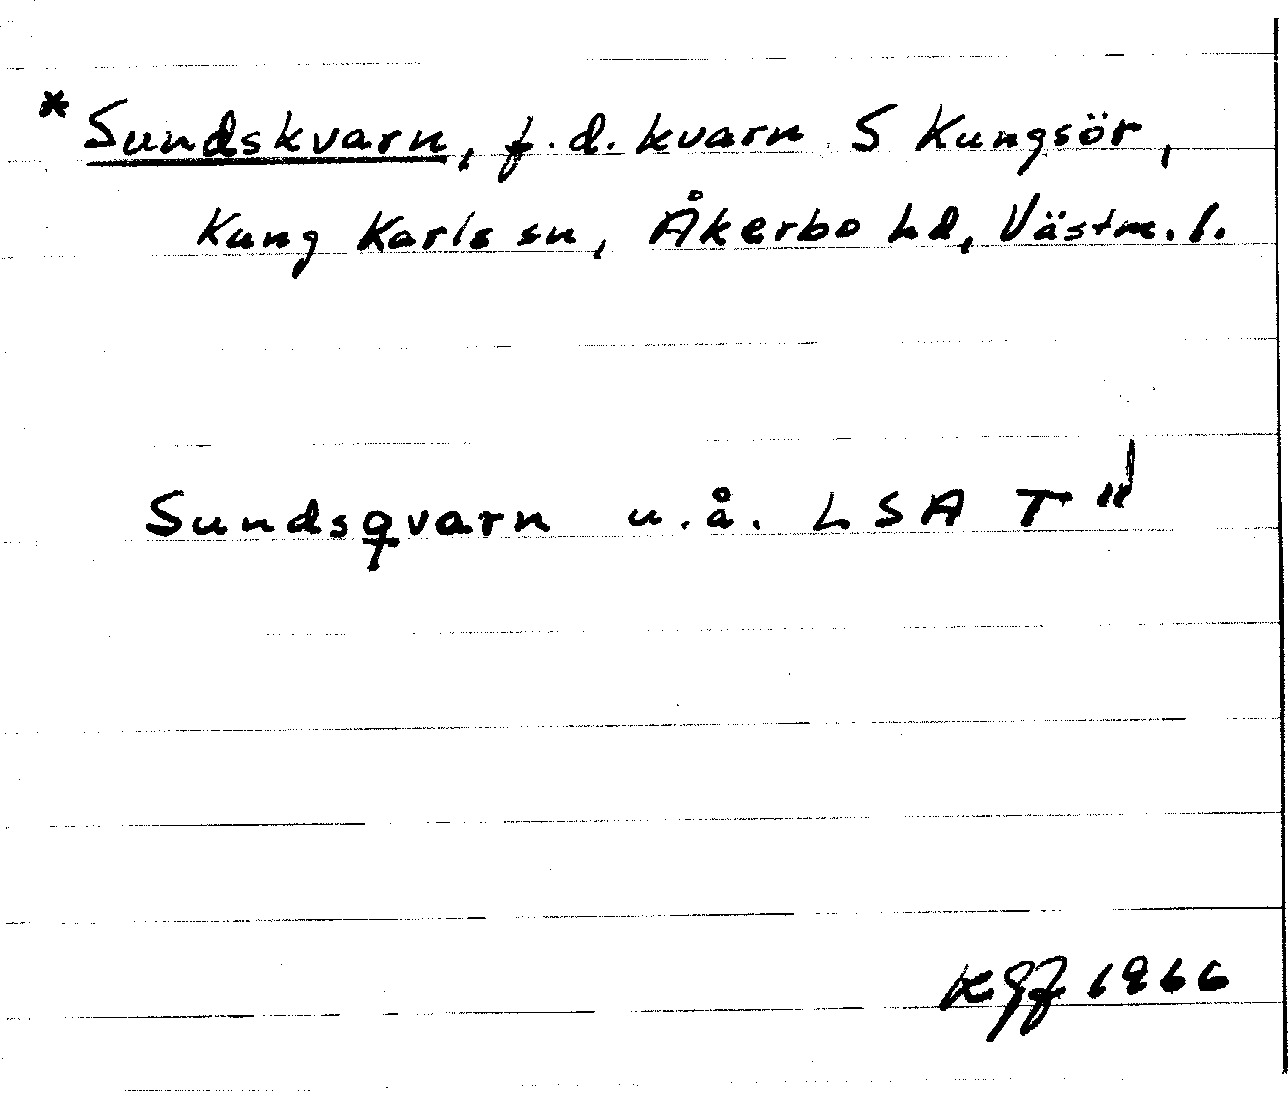 * Sundskvarn, f.d. kvarn S Kungsör,
Kung Karls sn, Åkerbo hd, Västm. l.
Sundsqvarn u.å. LSA T
KGF 1966